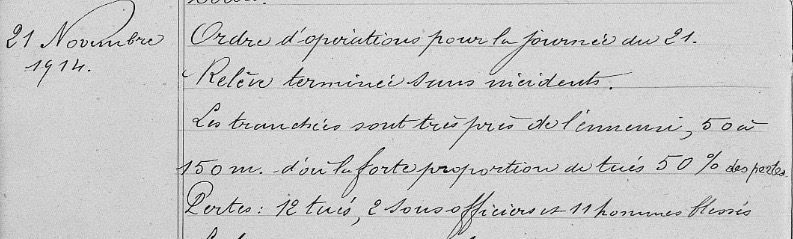 21 Novembre
1914.
Ordre d'opérations pour la journée du 21.
Relève terminée sans incidents.
Les tranchées sont très près de l'ennemi, 50 à
150 m. d'où la forte proportion de tués 50 % des pertes
Pertes: 12 tués, 2 sous officiers et 11 hommes blessés